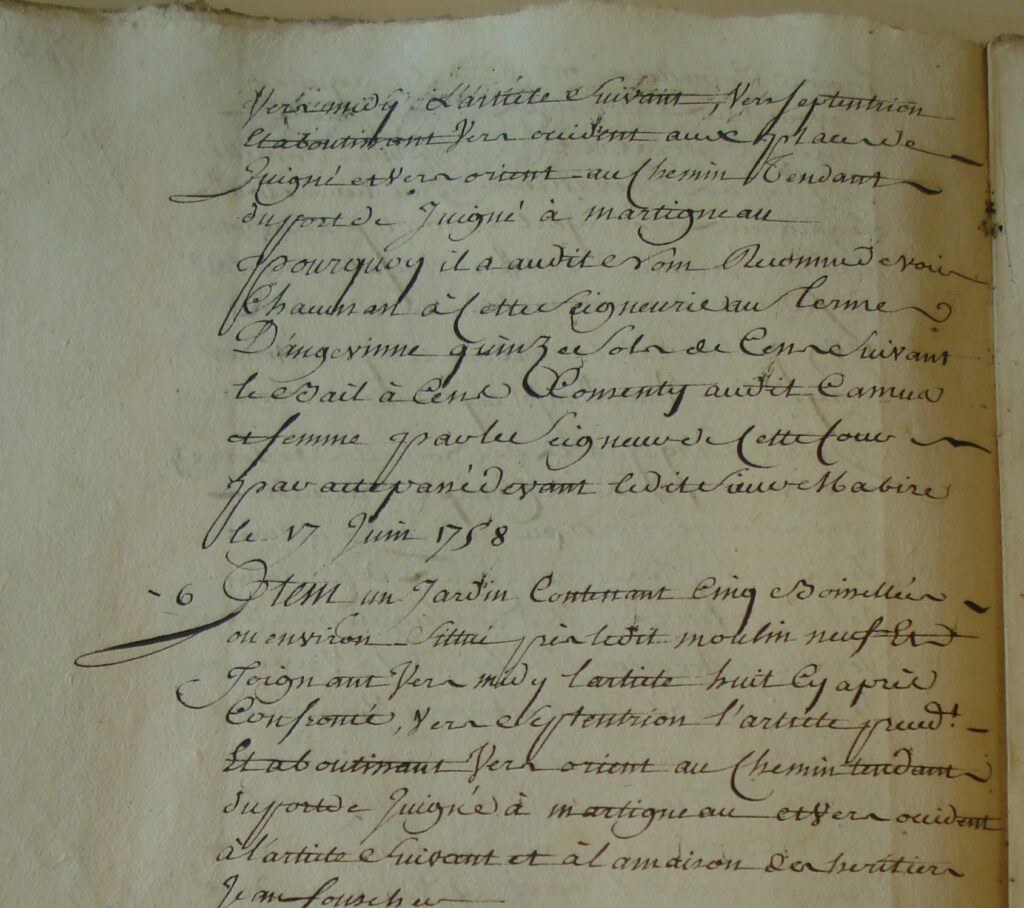 Vers midy L'article Suivant, Vers septentrion
Et aboutissant Vers occident aux place de
Juigné et vers orient au Chemin Tendant
du port de Juigné à martigneau
pourquoy il a audit nom Reconnu devoir
Chacun an à Cette Seigneurie au Terme
D'angevinne quinze Sols de Cens Suivant
le Bail à Cens Consenty audit Camus
et femme par les Seigneurs de Cette Cour
par acte passé devant ledit Sieur Mabire
le 17 Juin 1758
6 Item un Jardin Contenant Cinq Boissellées
ou environ Sittué près ledit moulin neuf Et
Joignant Vers midy l'article huit Cy après
Confronté, vers Septentrion l'article preced.t
Et aboutissant Vers orient au Chemin tendant
du port de Juigné à martigneau et vers occident
à l'article Suivant et à la maison des heritiers
Jean fouscher